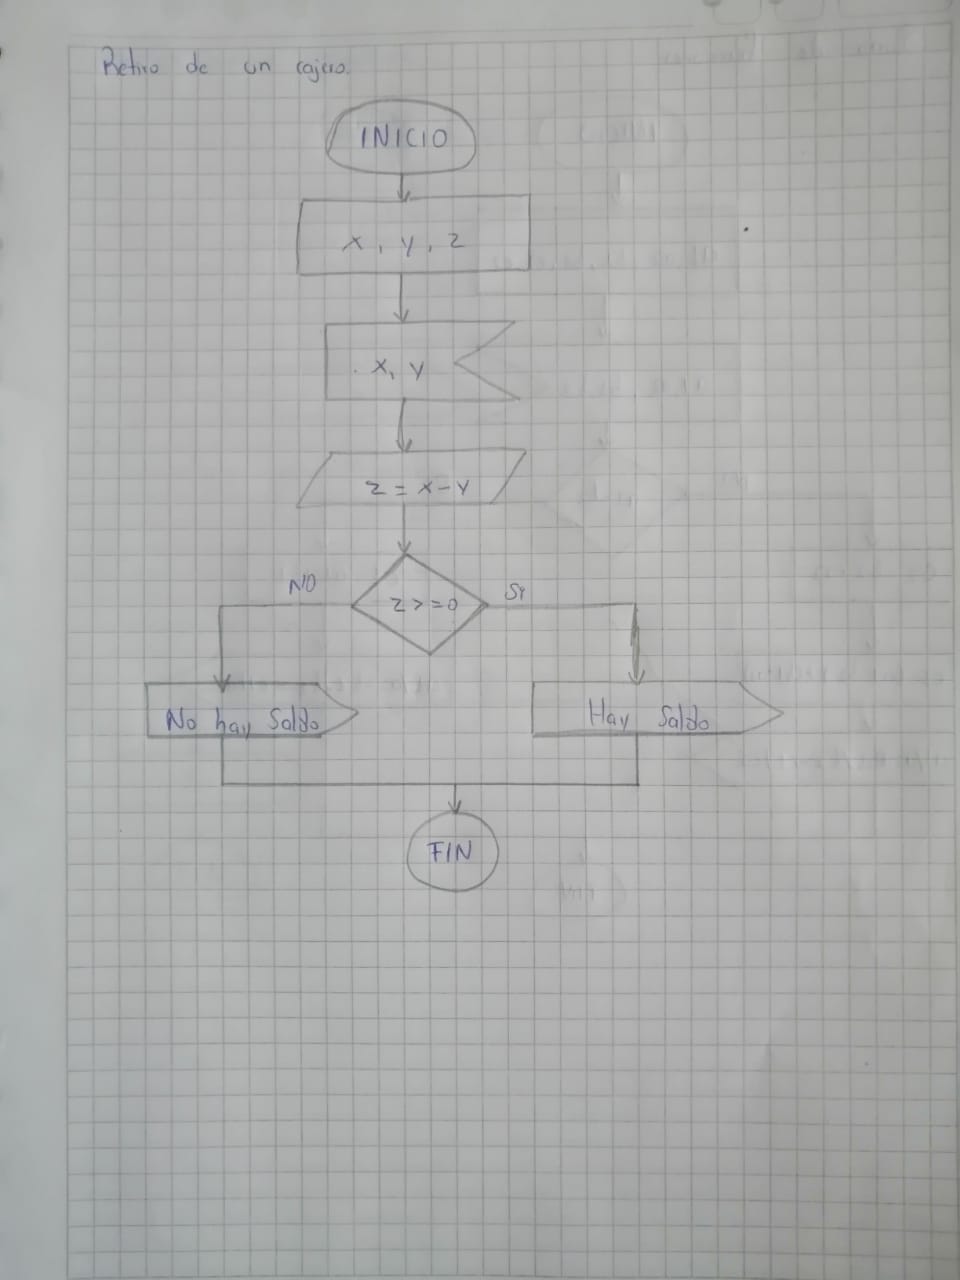 Retiro de un cajero.
INICIO
x, y, z
x, y
z = x-y
NO
z >= 0
Si
No hay Saldo
Hay Saldo
FIN